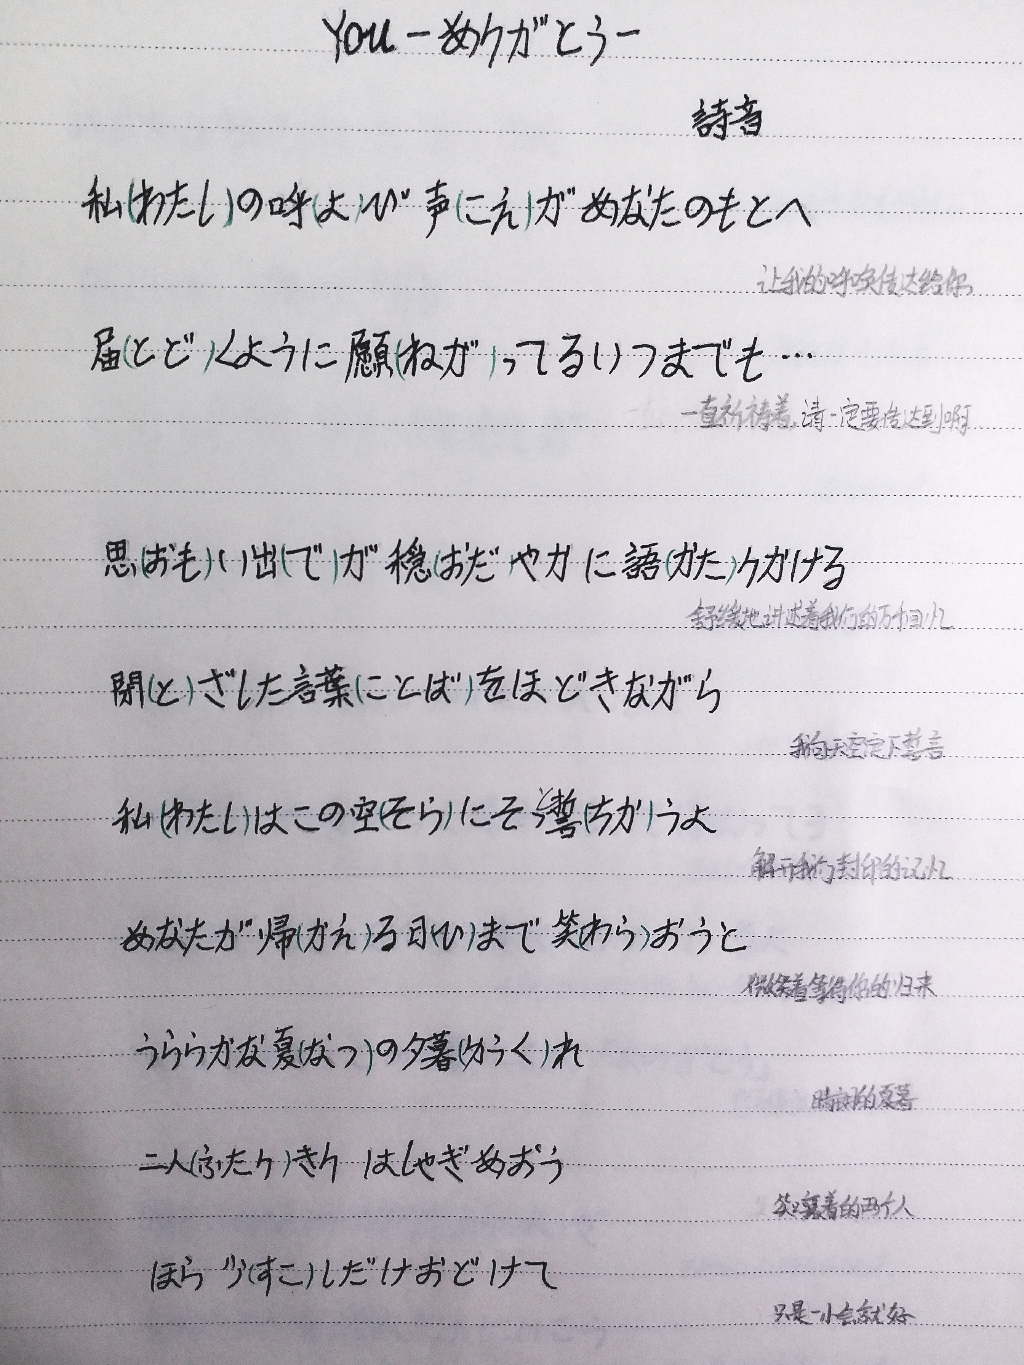 You －ありがとう－
詩音
私(わたし)の呼(よ)び声(こえ)があなたのもとへ
让我的呼唤传达给你
届(とど)くように願(ねが)ってるいつまでも…
一直祈祷着,请一定要传达到啊
思(おも)い出(で)が穏(おだ)やかに語(かた)りかける
舒缓地讲述着我们的万千回忆
閉(と)ざした言葉(ことば)をほどきながら
我向天空定下誓言
私(わたし)はこの空(そら)にそう誓(ちか)うよ
解开我们封印的记忆
あなたが帰(かえ)る日(ひ)まで笑(わら)おうと
微笑着等待你的归来
うららかな夏(なつ)の夕暮(ゆうく)れ
晴朗的夏暮
二人(ふたり)きり はしゃぎあおう
笑嚷着的两个人
ほら 少(すこ)しだけおどけて
只是一小会就好